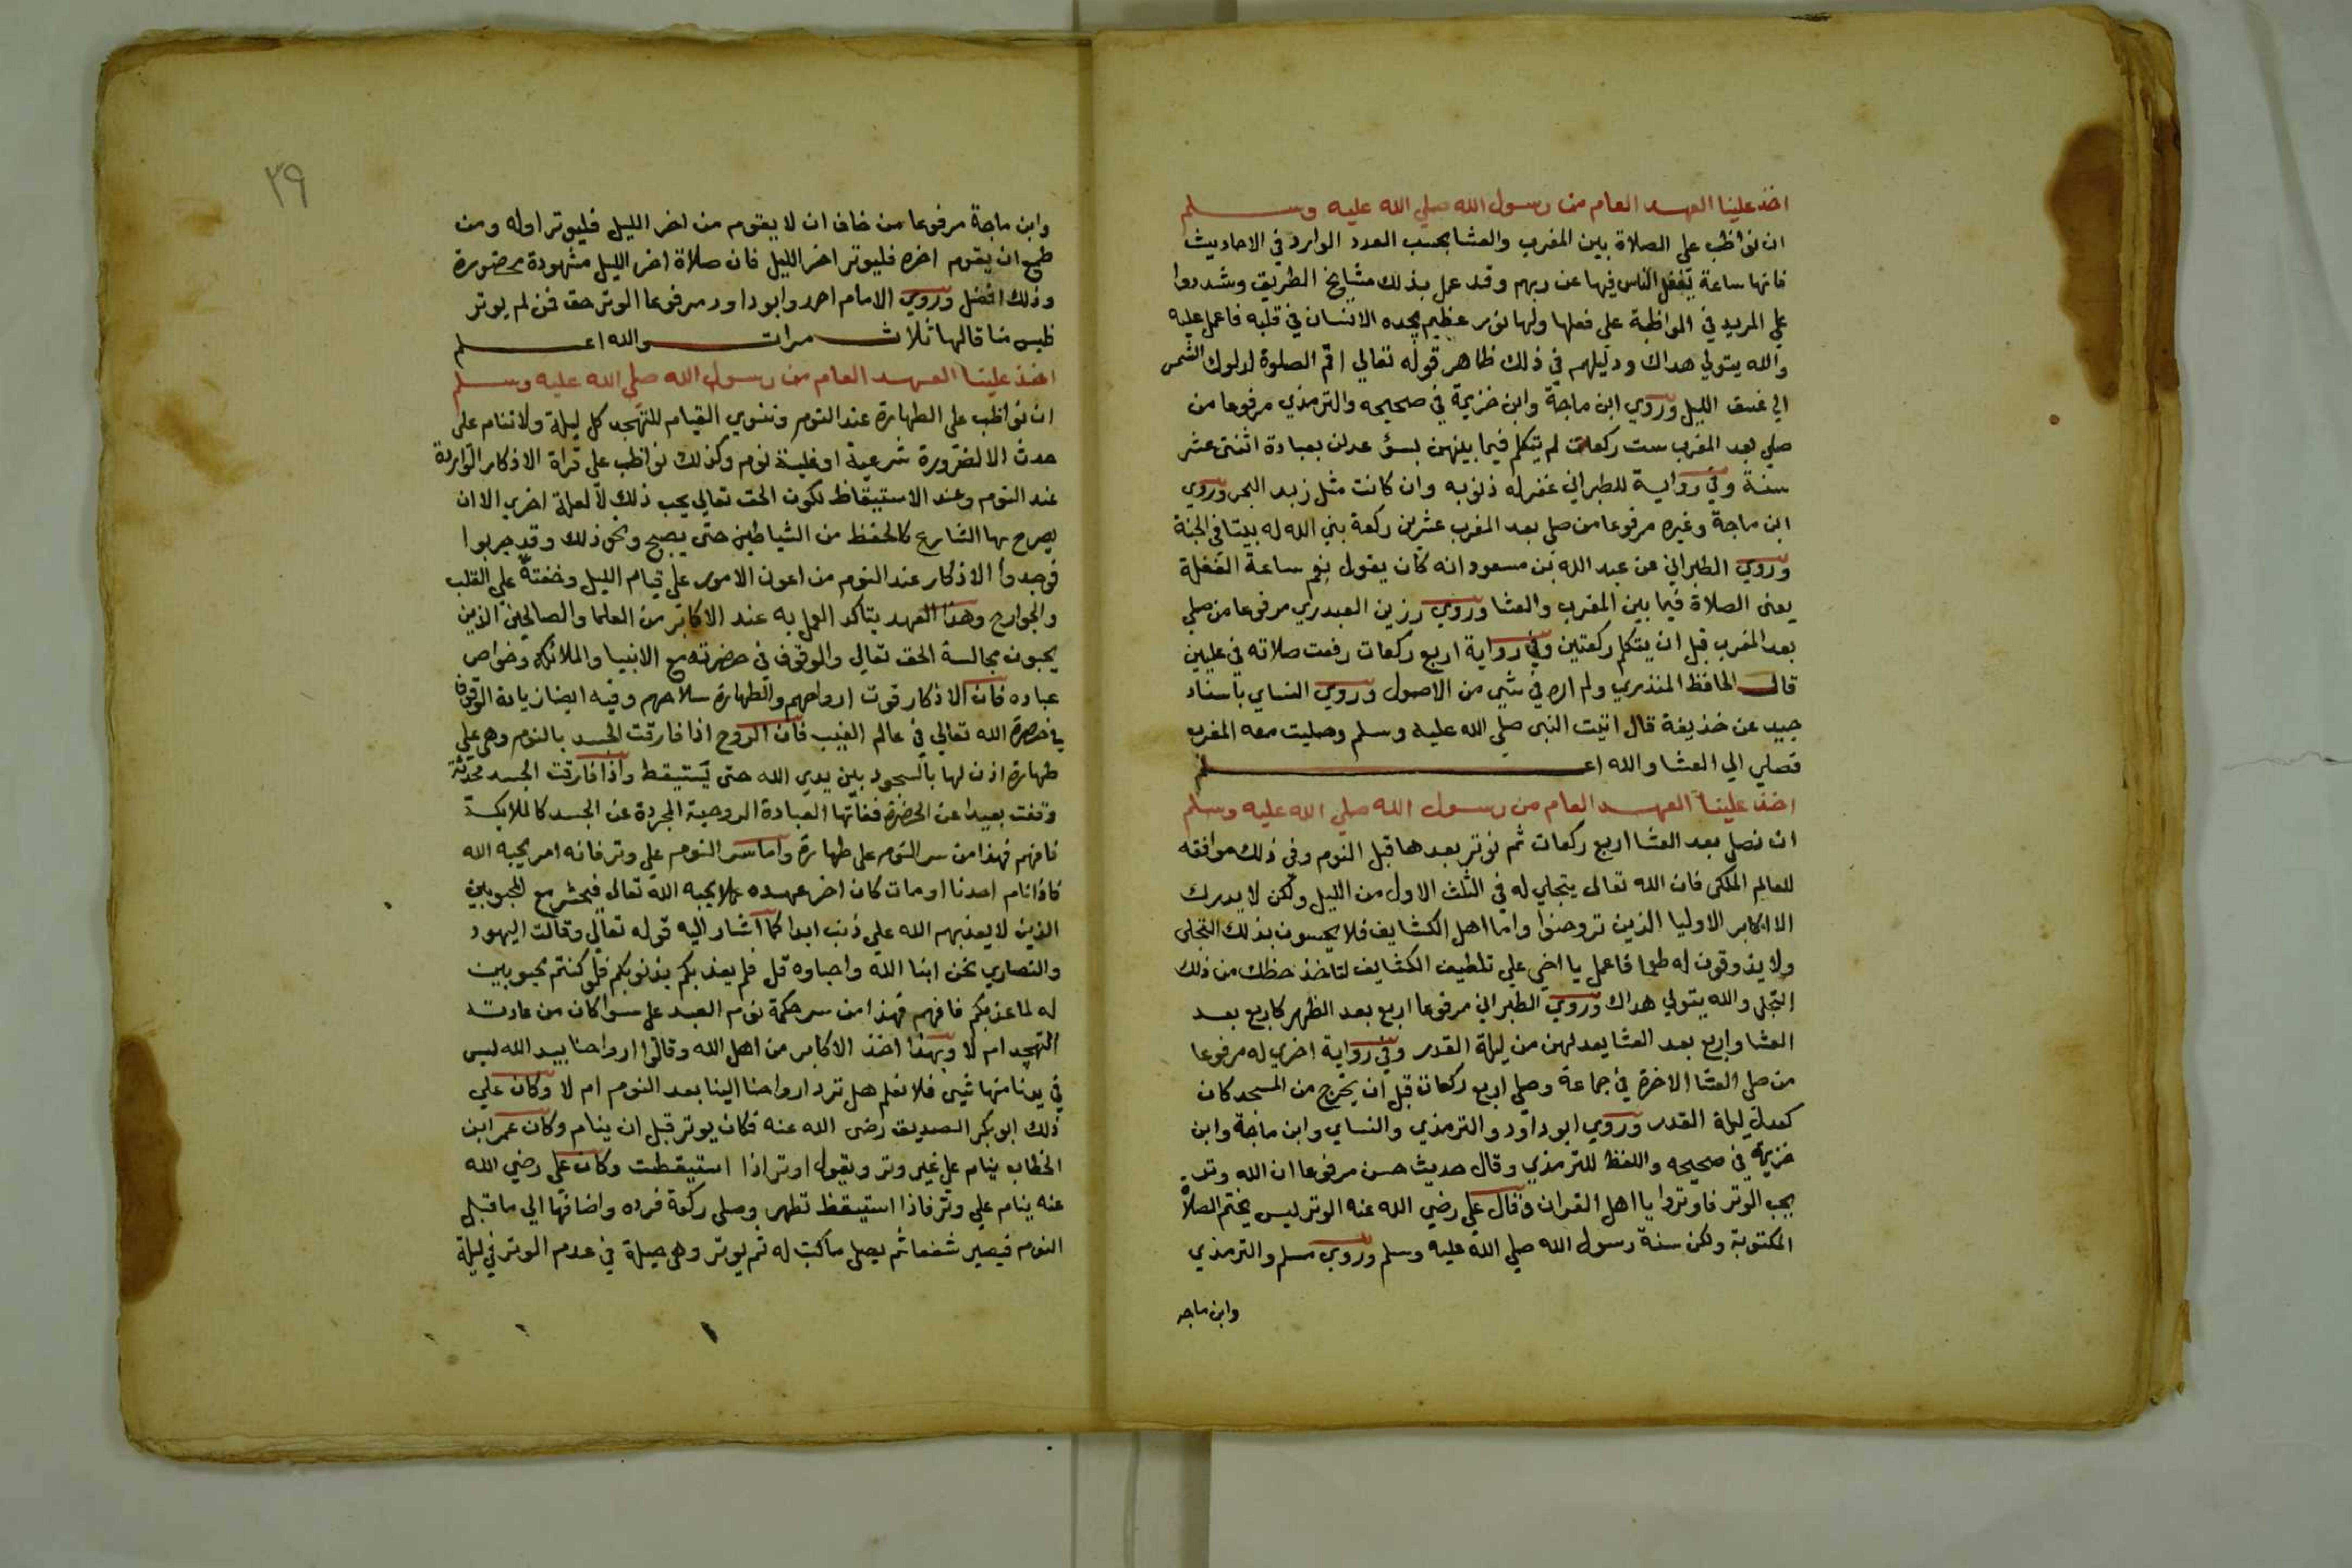 اخذ علينا العهد العام من رسول الله صلي الله عليه وسلم
ان نواظب على الصلاة بين المغرب والعشا بحسب العدد الوارد في الاحاديث
فانها ساعة يغفل الناس فيها عن ربهم وقد عمل بذلك مشايخ الطريق وشددوا
علي المريد في المواظبة على فعلها ولها نور عظيم يجده الانسان في قلبه فاعمل عليه
والله يتولي هداك ودليلهم في ذلك ظاهر قوله تعالي اقم الصلوة لدلوك الشمس
الي غسق الليل وروي ابن ماجة وابن خزيمة في صحيحه والترمذي مرفوعا من
صلي بعد المغرب ست ركعات لم يتكلم فيما بينهن بسؤ عدلن بعبادة اثنتى عشر
سنة وفي رواية للطبراني غفر له ذنوبه وان كانت مثل زبد البحر وروي
ابن ماجة وغيره مرفوعا من صلي بعد المغرب عشرين ركعة بني الله له بيتا في الجنة
وروي الطبراني عن عبد الله بن مسعود انه كان يقول نعم ساعة الغفلة
يعنى الصلاة فيما بين المغرب والعشا وروي رزين العبدري مرفوعا من صلي
بعد المغرب قبل ان يتكلم ركعتين وفي رواية اربع ركعات رفعت صلاته في عليين
قال الحافظ المنذري ولم اره في شي من الاصول وروي النساي باسناد
جيد عن خذيفة قال اتيت النبى صلي الله عليه وسلم وصليت معه المغرب
فصلي الي العشا والله اعلم
اخذ علينا العهد العام من رسول الله صلي الله عليه وسلم
ان نصلي بعد العشا اربع ركعات ثم نوتر بعدها قبل النوم وفي ذلك موافقه
للعالم الملكى فان الله تعالى يتجلي له في الثلث الاول من الليل ولكن لا يدرك
الا اكابر الاوليا الذين تروحنوا واما اهل الكشايف فلا يحسون بذلك التجلى
ولا يذوقون له طعما فاعمل يا اخي علي تلطيف الكشايف لتاخذ حظك من ذلك
التجلي والله يتولي هداك وروي الطبراني مرفوعا اربع بعد الظهر كاربع بعد
العشا واربع بعد العشا يعدلهن من ليلة القدر وفي رواية اخري له مرفوعا
من صلي العشا الاخرة في جماعة وصلي اربع ركعات قبل ان يخرج من المسجد كان
كعدل ليلة القدر وروي ابو داود والترمذي والنساي وابن ماجة وابن
خزيمة في صحيحه واللفظ للترمذي وقال حديث حسن مرفوعا ان الله وتر
يحب الوتر فاوتروا يا اهل القران وقال علي رضي الله عنه الوتر ليس بختم الصلاة
المكتوبة ولكن سنة رسول الله صلي الله عليه وسلم وروي مسلم والترمذي
وابن ماجه
٣٩
وابن ماجة مرفوعا من خاف ان لا يقوم من اخر الليل فليوتر اوله ومن
طمع ان يقوم اخره فليوتر اخر الليل فان صلاة اخر الليل مشهودة محضورة
وذلك افضل وروي الامام احمد وابو داود مرفوعا الوتر حق فمن لم يوتر
فليس منا قالها ثلاث مرات والله اعلم
اخذ علينا العهد العام من رسول الله صلي الله عليه وسلم
ان نواظب على الطهارة عند النوم وننوي القيام للتهجد كل ليلة ولا ننام على
حدث الا لضرورة شرعية او غلبة نوم وكذلك نواظب على قراة الاذكار الواردة
عند النوم وعند الاستيقاظ لكون الحق تعالي يحب ذلك لا لعلة اخري الا ان
يصرح بها الشارع كالحفظ من الشياطين حتى يصبح ونحو ذلك وقد جربوا
فوجدوا الاذكار عند النوم من اعون الامور علي قيام الليل وخفته علي القلب
والجوارح وهذا العهد يتاكد العمل به عند الاكابر من العلما والصالحين الذين
يحبون مجالسة الحق تعالي والوقوف في حضرته مع الانبيا والملائكة وخواص
عباده فان الاذكار قوت ارواحهم والطهارة سلاحهم وفيه ايضا زيادة الوقوف
في حضرة الله تعالي في عالم الغيب فان الروح اذا فارقت الجسد بالنوم وهي علي
طهارة اذن لها بالسجود بين يدي الله حتى يستيقظ واذا فارقت الجسد محدثة
وقفت بعيدا عن الحضرة ففاتها العبادة الروحية المجردة عن الجسد كالملايكة
فافهم فهذا من سر النوم على طهارة واما سر النوم علي وتر فانه امر يحبه الله
فاذا نام احدنا او مات كان اخر عهده عملا يحبه الله تعالي فيحشر مع المحبوبين
الذين لا يعذبهم الله علي ذنب ابدا كما اشار اليه قوله تعالي وقالت اليهود
والنصاري نحن ابنا الله واحباوه قل فلم يعذبكم بذنوبكم فلو كنتم محبوبين
له لما عذبكم فافهم فهذا من سر حكمة نوم العبد على سوا كان من عادته
التهجد ام لا وبهذا اخذ الاكابر من اهل الله وقالوا ارواحنا بيد الله ليس
في يدنا منها شي فلا نعلم هل ترد ارواحنا الينا بعد النوم ام لا وكان علي
ذلك ابو بكر الصديق رضى الله عنه فكان يوتر قبل ان ينام وكان عمر ابن
الخطاب ينام علي غير وتر ويقول اوتر اذا استيقظت وكان علي رضي الله
عنه ينام علي وتر فاذا استيقظ تطهر وصلي ركعة فرده واضافها الي ما قبل
النوم فيصير شفعا ثم يصلي ما كتب له ثم يوتر وهي حيلة في عدم الوتر في ليلة